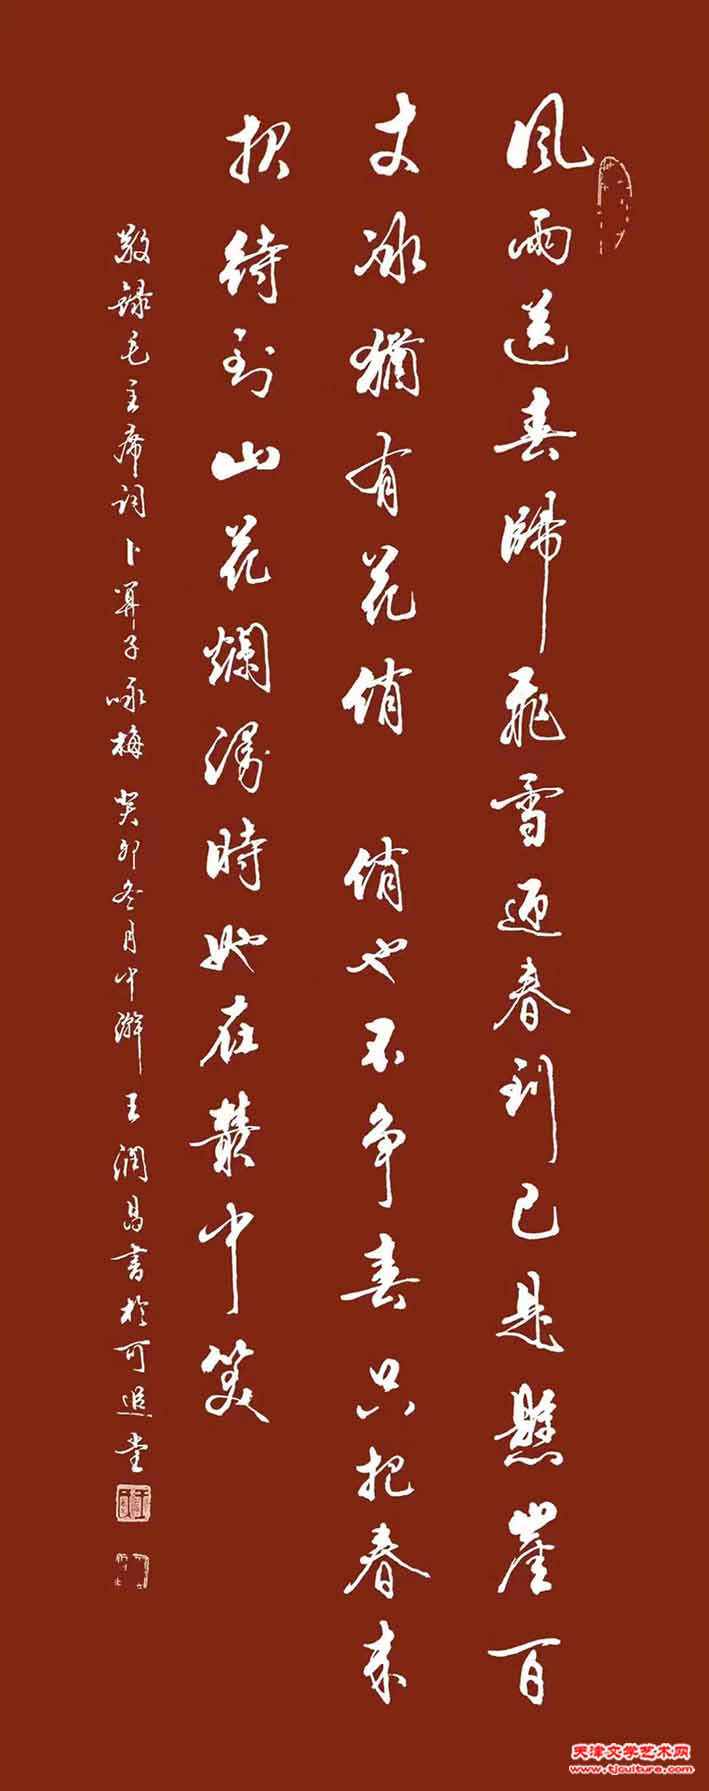 風雨送春歸飛雪迎春到已是懸崖百
丈冰猶有花俏 俏也不争春只把春来
报待到山花爛漫時她在叢中笑
敬録毛主席词卜算子咏梅 癸卯冬月中澣 王潤昌書於可追堂
天津文学艺术网
www.tjculture.com